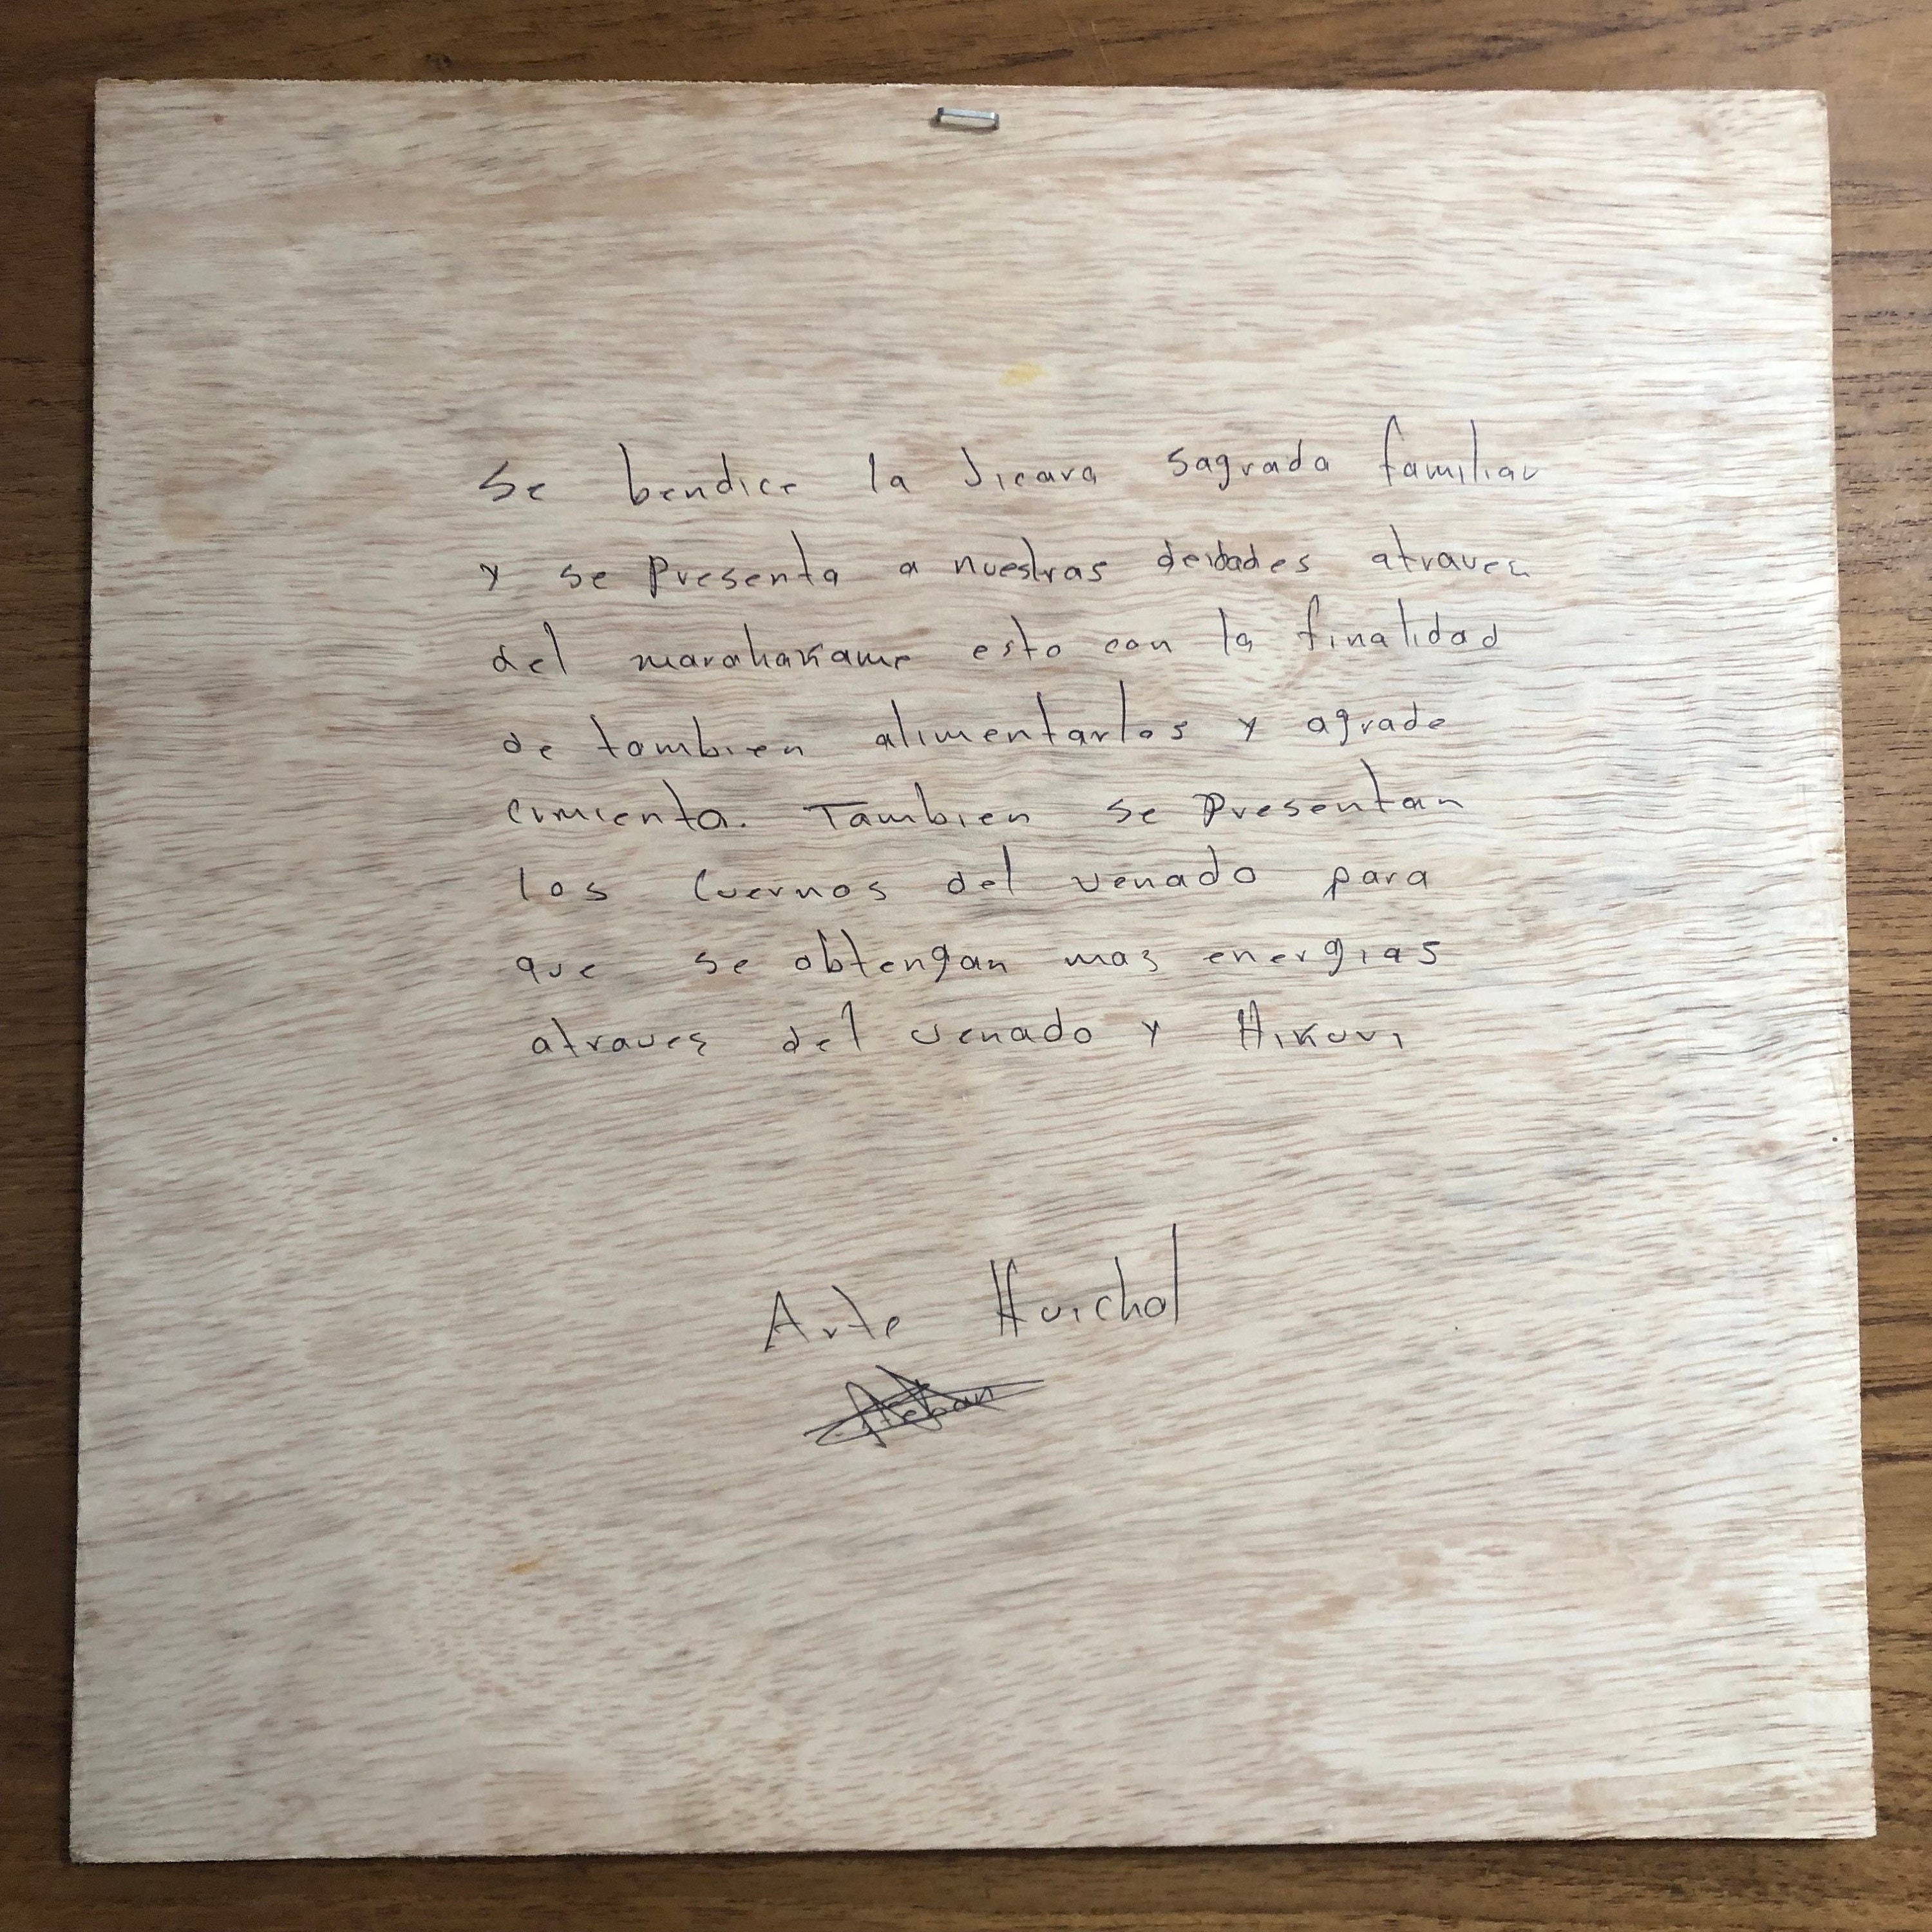 Se bendice la Jicara sagrada familiar
y se presenta a nuestras deidades atraves
del marahakame esto con la finalidad
de tambien alimentarlos y agrade
cimiento. Tambien se presentan
los cuernos del venado para
que se obtengan mas energias
atraves del venado y Hikuri
Arte Huichol